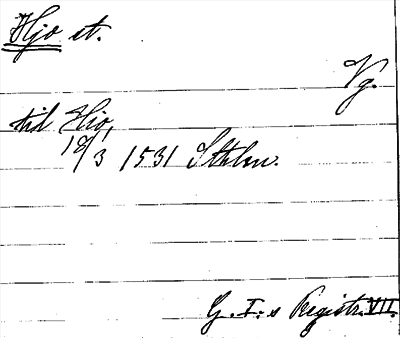 Hjo st.
Vg.
til Hio,
18/3 1531 Sthlm.
G. I:s Registr. VII.